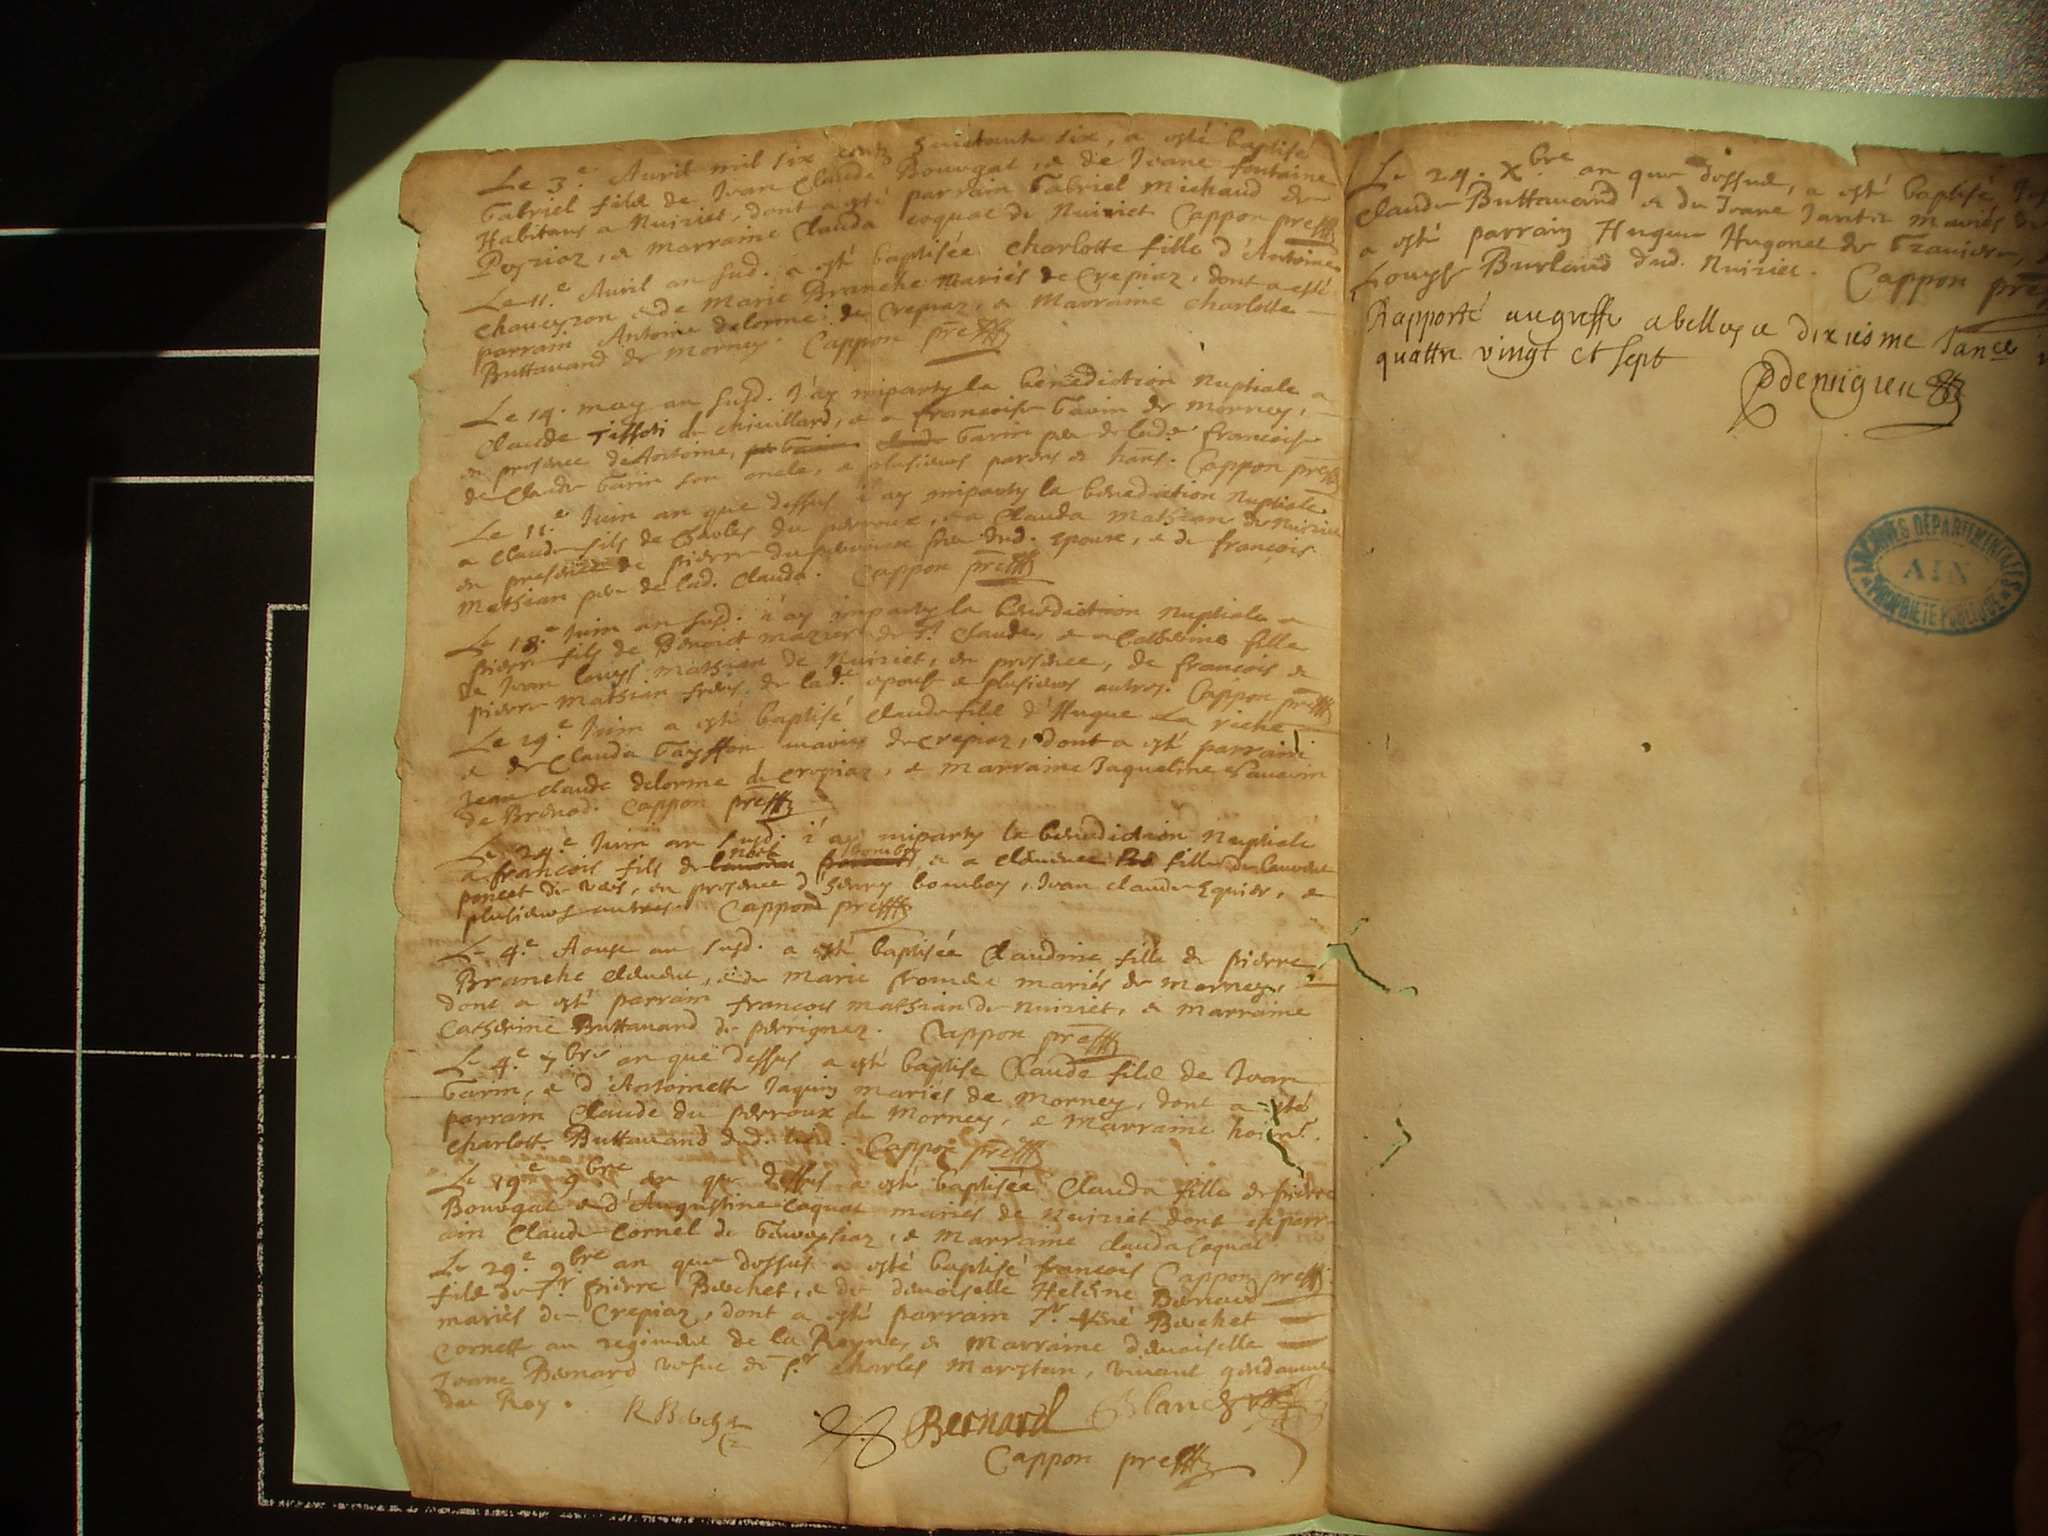 Le 3.e Avril mil six cents huictante six, a esté baptisé
Gabriel fils de Jvan Claude Bouvgat, & de Jvane fontaine
Habitans a Nuiriet, dont a esté parrain Gabriel Michaud de
Peyriaz, & marraine Clauda coquat de Nuiriet. Cappon pre
Le 11.e Avril an susd. a esté baptisée charlotte fille d'Antoine
chaueyron & de Marie Branche Mariés de Crepiaz, dont a esté
parrain Antoine delorme de Crepiaz, & Marraine charlotte
Buttauand de Morney. Cappon pre
Le 14. may an susd. J'ay imparty la benediction Nuptiale a
Claude Tissoti de chiuillard, & a francoise Gauin de Morney,
en presence de Antoine, Garin pere de lad.e francoise
de Claude Garin son oncle, & plusieurs parens & Cappon pre
Le 11.e Juin an que dessus i'ay imparty la benediction Nuptiale
a Claude fils de Charles du perroux, & a Clauda Mathian de Nuiriet
en presence de pierre du perroux frere dud. Epoux, & de françois
Mathian pere de lad. Clauda. Cappon pre
Le 18.e Juin an susd. i'ay imparty la benediction Nuptiale a
pierre fils de Benoict mazier de St. Claude, & a Catherine fille
de Jvan louys Mathian de Nuiriet, en presence, de francois &
pierre Mathian freres de lad.e epouse & plusieurs autres. Cappon pre
Le 19.e Juin a esté baptisé claude fils d'Hugue La riche
& de Clauda Gaysson mariés de Crepiaz, dont a esté parrain
Jean claude delorme de Crepiaz, & Marraine Jaqueline Sauarin
de Brenod. Cappon pre
Le 24.e Juin an susd. i'ay imparty la benediction Nuptiale
a francois fils de Noel bomboy, & a fille de lauvent
poncet de vais, en presence d'henry bomboy, Jvan claude Equier, &
plusieurs autres. Cappon pre
Le 4.e Aoust an susd. a esté baptisée Claudine fille de pierre
Branche Clement, & de Marie mariés de Morney,
dont a esté parrain francois Mathian de Nuiriet, & Marraine
Catherine Buttauand de perrignez. Cappon pre
Le 4.e 7bre an que dessus a esté baptise Claude fils de Jvan
Garin, & d'Antoinette Jaquin mariés de Morney, dont a esté
parrain Claude du perroux de Morney, & Marraine
charlotte Buttauand dud. lieu. Cappon pre
Le 19.e 9bre an que dessus a esté baptisée Clauda fille de pierre
Bouvgat & d'Augustine Coquat mariés de Nuiriet dont est parr-
ain Claude Cornel de & Marraine clauda Coquat
Le 29.e 9bre an que dessus a esté baptisé francois Cappon pre
fils de Sr pierre Bochet, & de demoiselle Helene Bernard
mariés de Crepiaz, dont a esté parrain Sr René Bochet
Cornette au regiment de la Reyne, & Marraine demoiselle
Jvane Bernard vefue de Sr Charles Marestan, viuant gendarme
du Roy.
R Bochet Bernard Blanchet
Cappon pre
Le 24. Xbre an que dessus, a esté baptisé
Claude Buttauand & de Jvane Jantet mariés
a esté parrain Hugue Hugonet de
Louyse Burlaud dud. Nuiriet. Cappon pre
Rapporté au greffe a belley ce dixiesme Jance
quattre vingt et sept
Demigieu
ARCHIVES DÉPARTEMENTALES
AIN
PROPRIÉTÉ PUBLIQUE